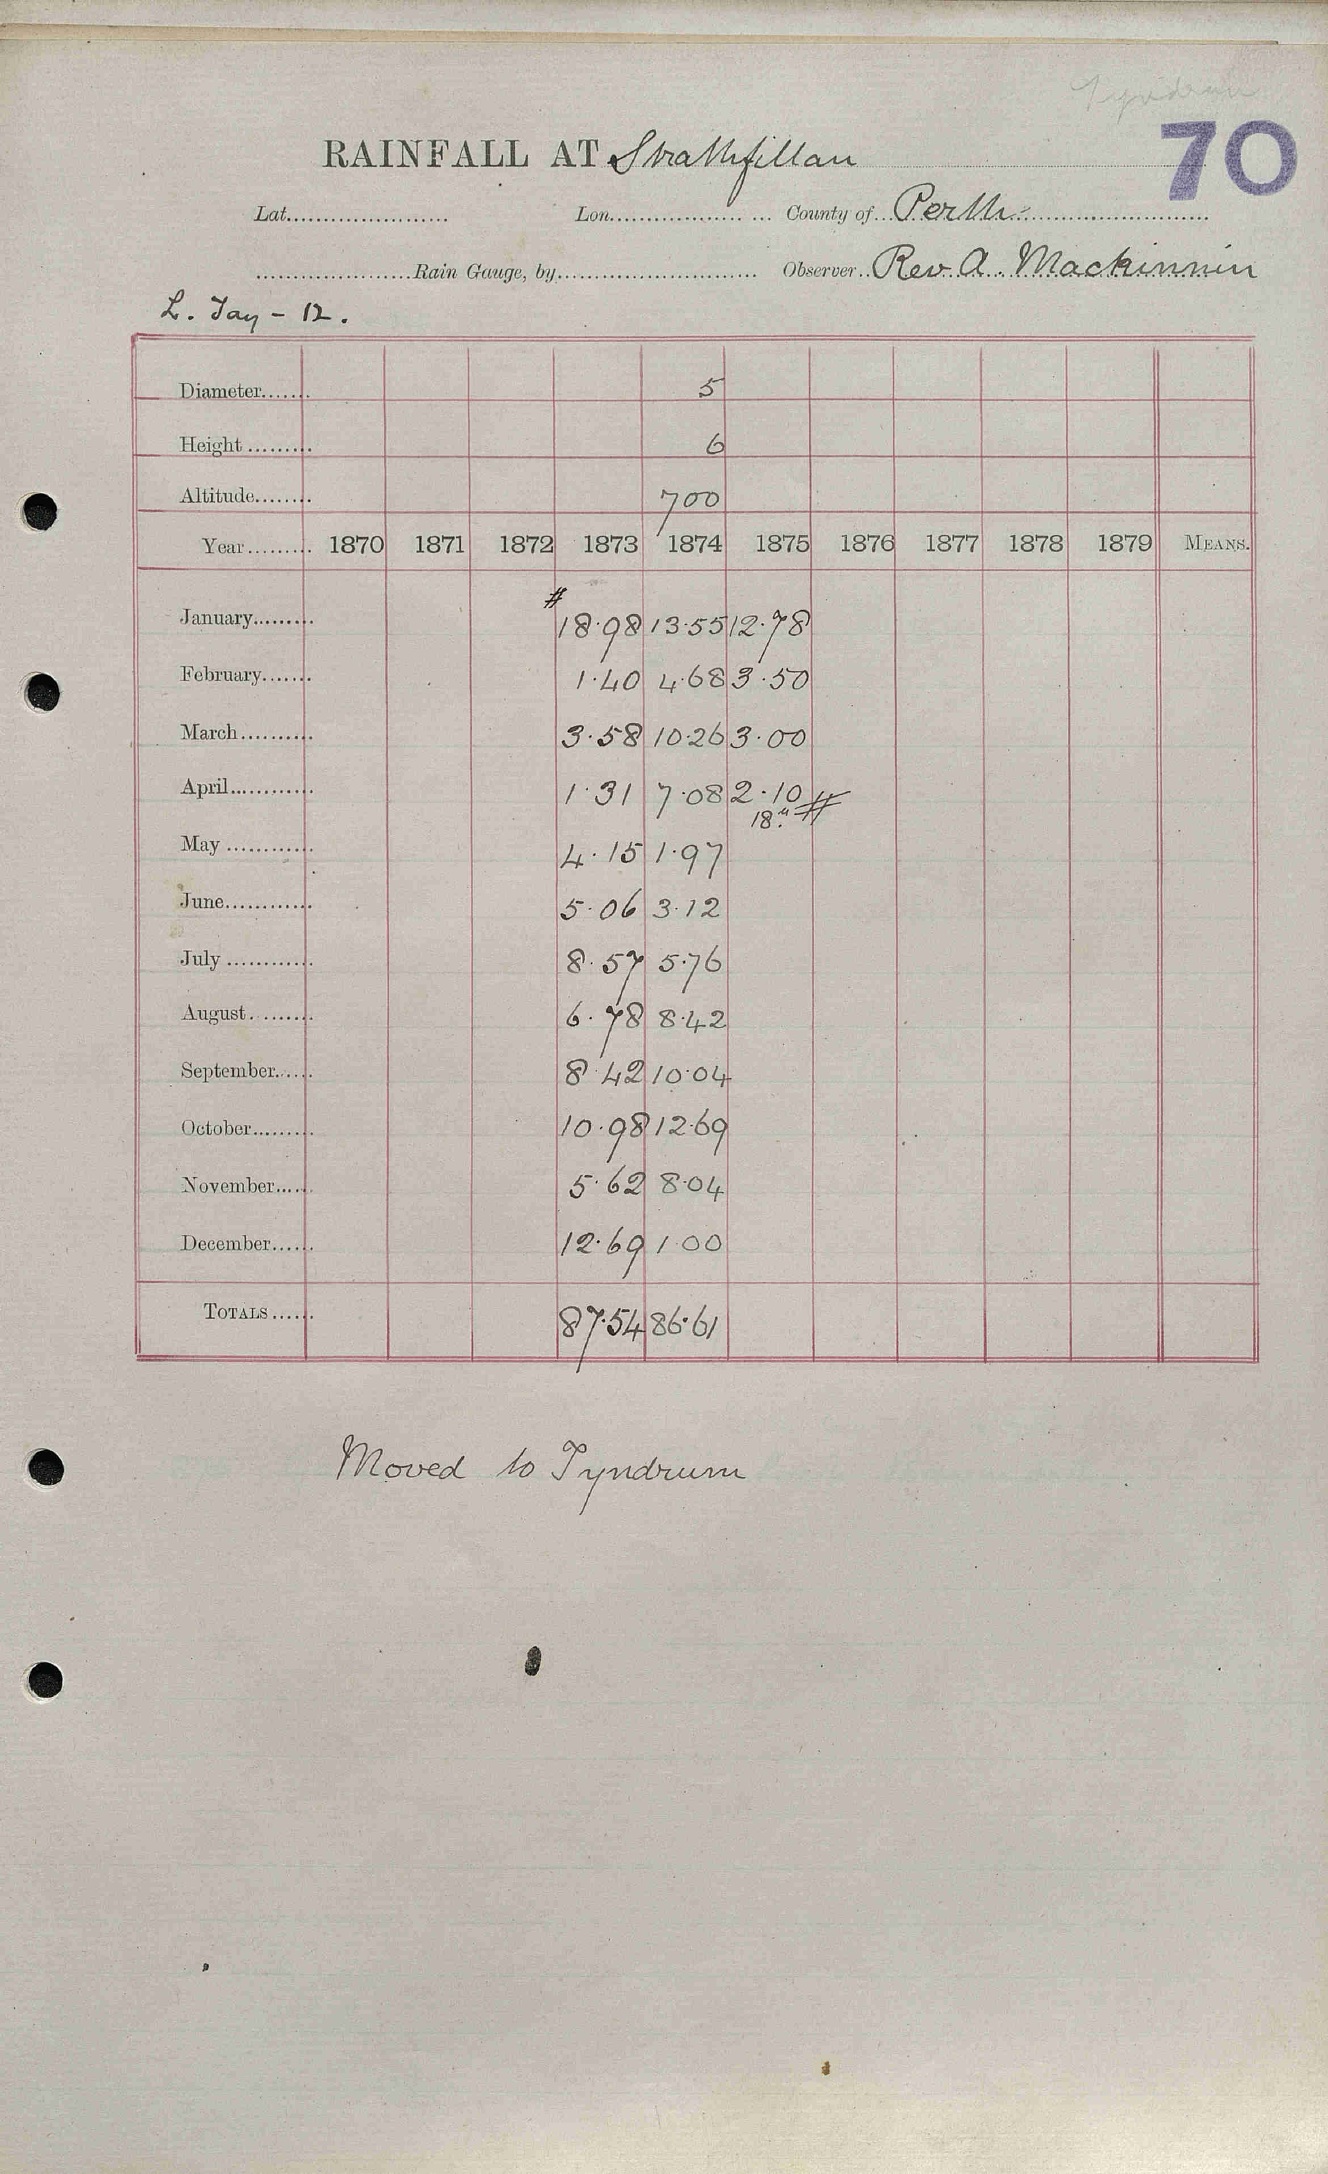 Tyndrum
70
RAINFALL AT Strathfillan
Lat. Lon. County of Perth
Rain Gauge, by Observer Rev A. Mackinnin
L. Tay - 12.
Diameter 5
Height 6
Altitude 700
Year 1870 1871 1872 1873 1874 1875 1876 1877 1878 1879 MEANS.
#
January 18.98 13.55 12.78
February 1.40 4.68 3.50
March 3.58 10.26 3.00
April 1.31 7.08 2.10 #
18.
May 4.15 1.97
June 5.06 3.12
July 8.57 5.76
August 6.78 8.42
September 8.42 10.04
October 10.98 12.69
November 5.62 8.04
December 12.69 1.00
TOTALS 87.54 86.61
Moved to Tyndrum